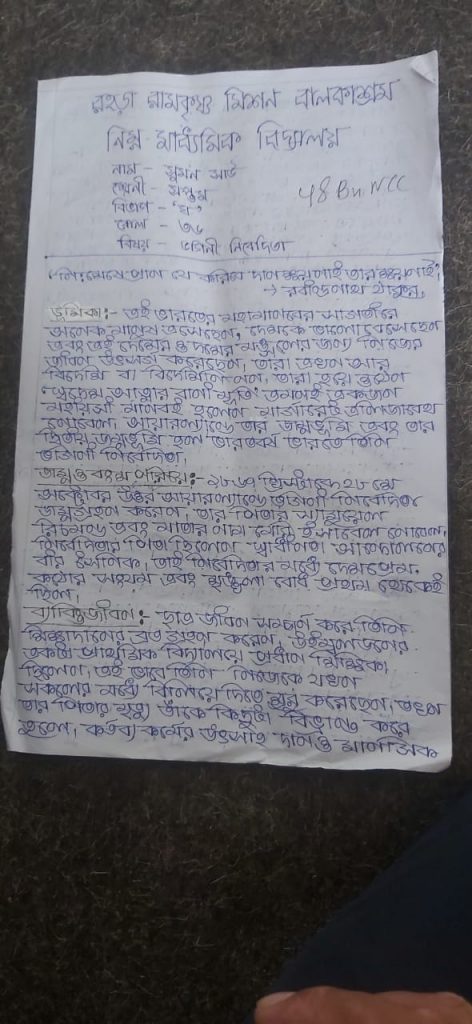 রহড়া রামকৃষ্ণ মিশন বালকাশ্রম
নিম্ন মাধ্যমিক বিদ্যালয়
নাম - সুমন সাউ
শ্রেনী - সপ্তম
বিভাগ - 'ঘ'
রোল - ৩৬
বিষয় - ভগিনী নিবেদিতা
48 Bn NCC
"নিঃশেষে প্রাণ যে করিবে দান ক্ষয় নাই তার ক্ষয় নাই"
→ রবীন্দ্রনাথ ঠাকুর
ভূমিকা:- এই ভারতের মহামানবের সাগরতীরে
অনেক মানুষ এসেছেন, দেশকে ভালো বেসেছেন
এবং এই দেশের ও দশের মঙ্গলের জন্য নিজের
জীবন উৎসর্গ করেছেন, তারা তখন আর
বিদেশি বা বিদেশিনী নন, তারা হয়ে ওঠেন
"স্বদেশ আত্মার বাণী মূর্তি" এমনই একজন
মহীয়সী মানবী হলেন মার্গারেট এলিজাবেথ
নোবেল, আয়ারল্যান্ডে তার জন্মভূমি এবং তার
দ্বিতীয় জন্মভূমি হল ভারতবর্ষ ভারতে তিনি
ভগিনী নিবেদিতা,
জন্ম ও বংশ পরিচয়:- ১৮৬৭ খ্রিস্টাব্দে ২৮ শে
অক্টোবর উত্তর আয়ারল্যান্ডে ভগিনী নিবেদিতা
জন্মগ্রহন করেন, তার পিতার স্যামুয়েল
রিচমন্ড এবং মাতার নাম মেরি ইসাবেল নোবেল,
নিবেদিতার পিতা ছিলেন স্বাধীনতা আন্দোলনের
বীর সৈনিক, তাই নিবেদিতার মধ্যে দেশপ্রেম
কঠোর সংযম এবং শৃঙ্খলা বোধ প্রথম থেকেই
ছিল,
ব্যাক্তিজীবন:- ছাত্র জীবন সম্পূর্ণ করে তিনি
শিক্ষাদানের ব্রত গ্রহন করেন, উইম্বলডনের
একটি প্রাথমিক বিদ্যালয়ে প্রধান শিক্ষিকা
ছিলেন, এই ভাবে তিনি নিজেকে যখন
সকলের মধ্যে বিলিয়ে দিতে শুরু করেছেন, তখন
তার পিতার মৃত্যু তাঁকে কিছুটা বিভ্রান্ত করে
তুলে, কর্তব্য কর্মের উৎসাহ দানও মানসিক